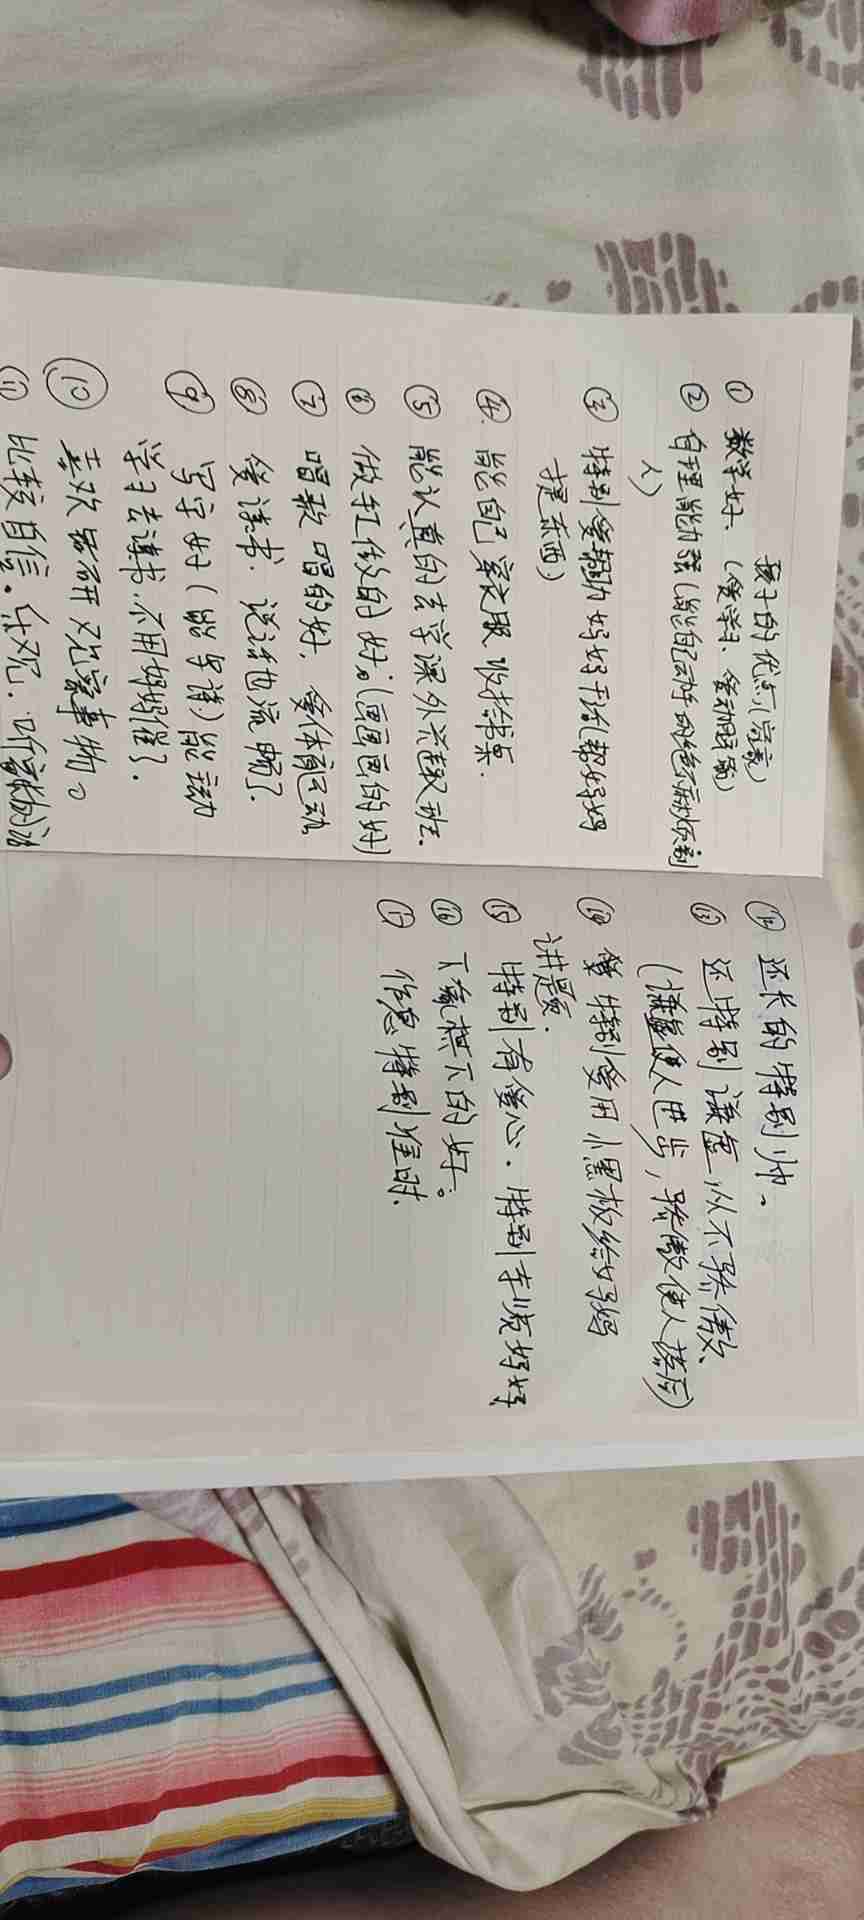 孩子的优点(字义)
① 数学好、(爱学习、爱动脑筋)
② 自理能力强(能自己做的绝不麻烦别
人)
③ 特别爱帮助妈妈干活(帮妈妈
提东西)
④ 能自己穿衣服 收拾书桌.
⑤ 能认真的去学课外兴趣班.
⑥ 做手工做的好。(画画画的好)
⑦ 唱歌唱的好, 爱体育运动
⑧ 爱读书. 说话也流畅了.
⑨ 写字好( )能主动
学习去读书,不用妈妈催了.
⑩ 喜欢钻研 观察事物。
⑪ 比较自信. 乐观. 听
⑫ 还长的特别帅、
⑬ 还特别谦虚,从不骄傲、
(谦虚使人进步,骄傲使人落后)
⑭ 特别爱用小黑板给妈妈
讲题.
⑮ 特别有爱心. 特别孝顺妈妈
⑯ 下象棋下的好。
⑰ 作息特别准时.